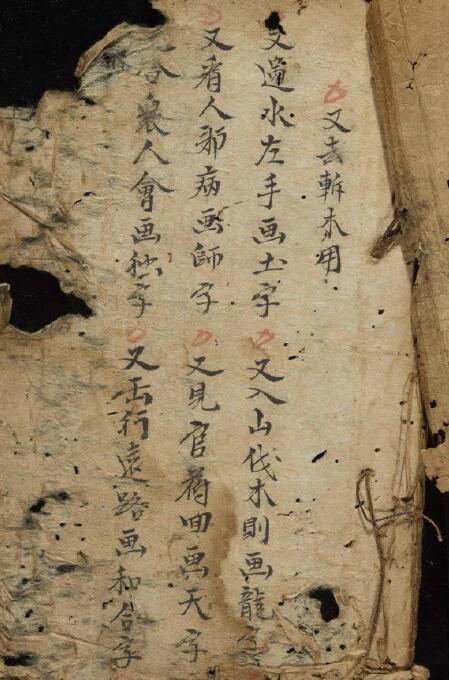 又去斬木用
又遇水左手画土字 又入山伐木則画龍字
又看人邪病画師字 又見官府囬画天字
衆人會画字 又出行遠路画和合字